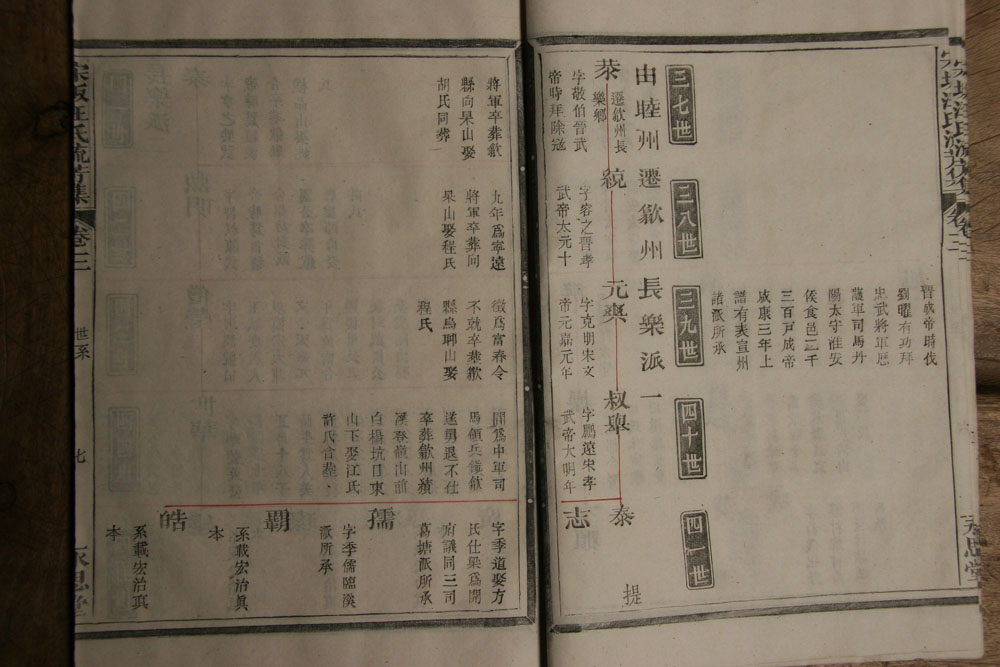 晉成帝時伐
劉曜有功拜
忠武將軍歷
護軍司馬丹
陽太守淮安
侯食邑二千
三百戸成帝
咸康三年上
譜有表宣州
諸派所承
三七世
三八世
三九世
四十世
四一世
由睦州遷歙州長樂派一
㳟
遷歙州長
樂鄉
字敬伯晉武
帝時拜除寇
將軍卒葬歙
縣向杲山娶
胡氏同葬
統
字容之晉孝
武帝太元十
九年爲寧遠
將軍卒葬向
杲山娶程氏
元
字克明宋文
帝元嘉元年
徵爲富春令
不就卒葬歙
縣烏聊山娶
程氏
叔舉
字鵬遠宋孝
武帝大明年
間爲中軍司
馬領兵鎮歙
遂勇退不仕
卒葬歙州績
溪登源山前
白楊坑日東
山下娶江氏
許氏合葬
泰
提
志
字季道娶方
氏仕梁爲開
府議同三司
葛塘派所承
孺
字季儒臨溪
派所承
覇
系載宏治眞
本
皓
系載宏治眞
本
卷二
世系
七
永思堂
卷二
永思堂